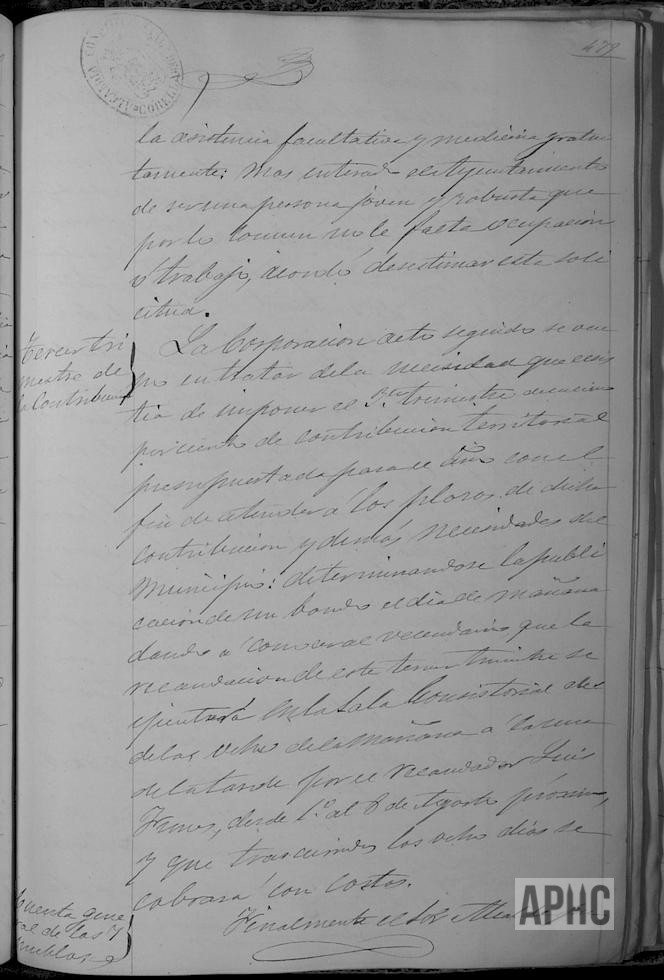 479
la asistencia facultativa y medicina gratui
tamente: Mas enterado el Ayuntamiento
de ser una persona joven y robusta que
por lo comun no le falta ocupación
ó trabajo, acordó desestimar esta soli
citud.
Tercer tri
mestre de
la Contribucion
La Corporacion acto seguido se ocu
pó en tratar de la necesidad que ecsis
tia de imponer el 3er trimestre
por ciento de contribucion territorial
presupuestada para el año con el
fin de atender á los plazos de dicha
contribucion y demás necesidades del
Municipio: determinandose la publi
cacion de un bando el dia de mañana
dando á conocer al vecindario que la
recaudacion de este tercer trimestre se
ejecutará en la Sala Consistorial de
de las ocho de la mañana a la una
de la tarde por el recaudador Luis
Funes, desde 1º al 8 de Agosto próximo,
y que trascurridos los ocho dias se
cobrará con costas.
Cuenta gene
ral de los
pueblos
Finalmente el Sor Alcalde
APHC